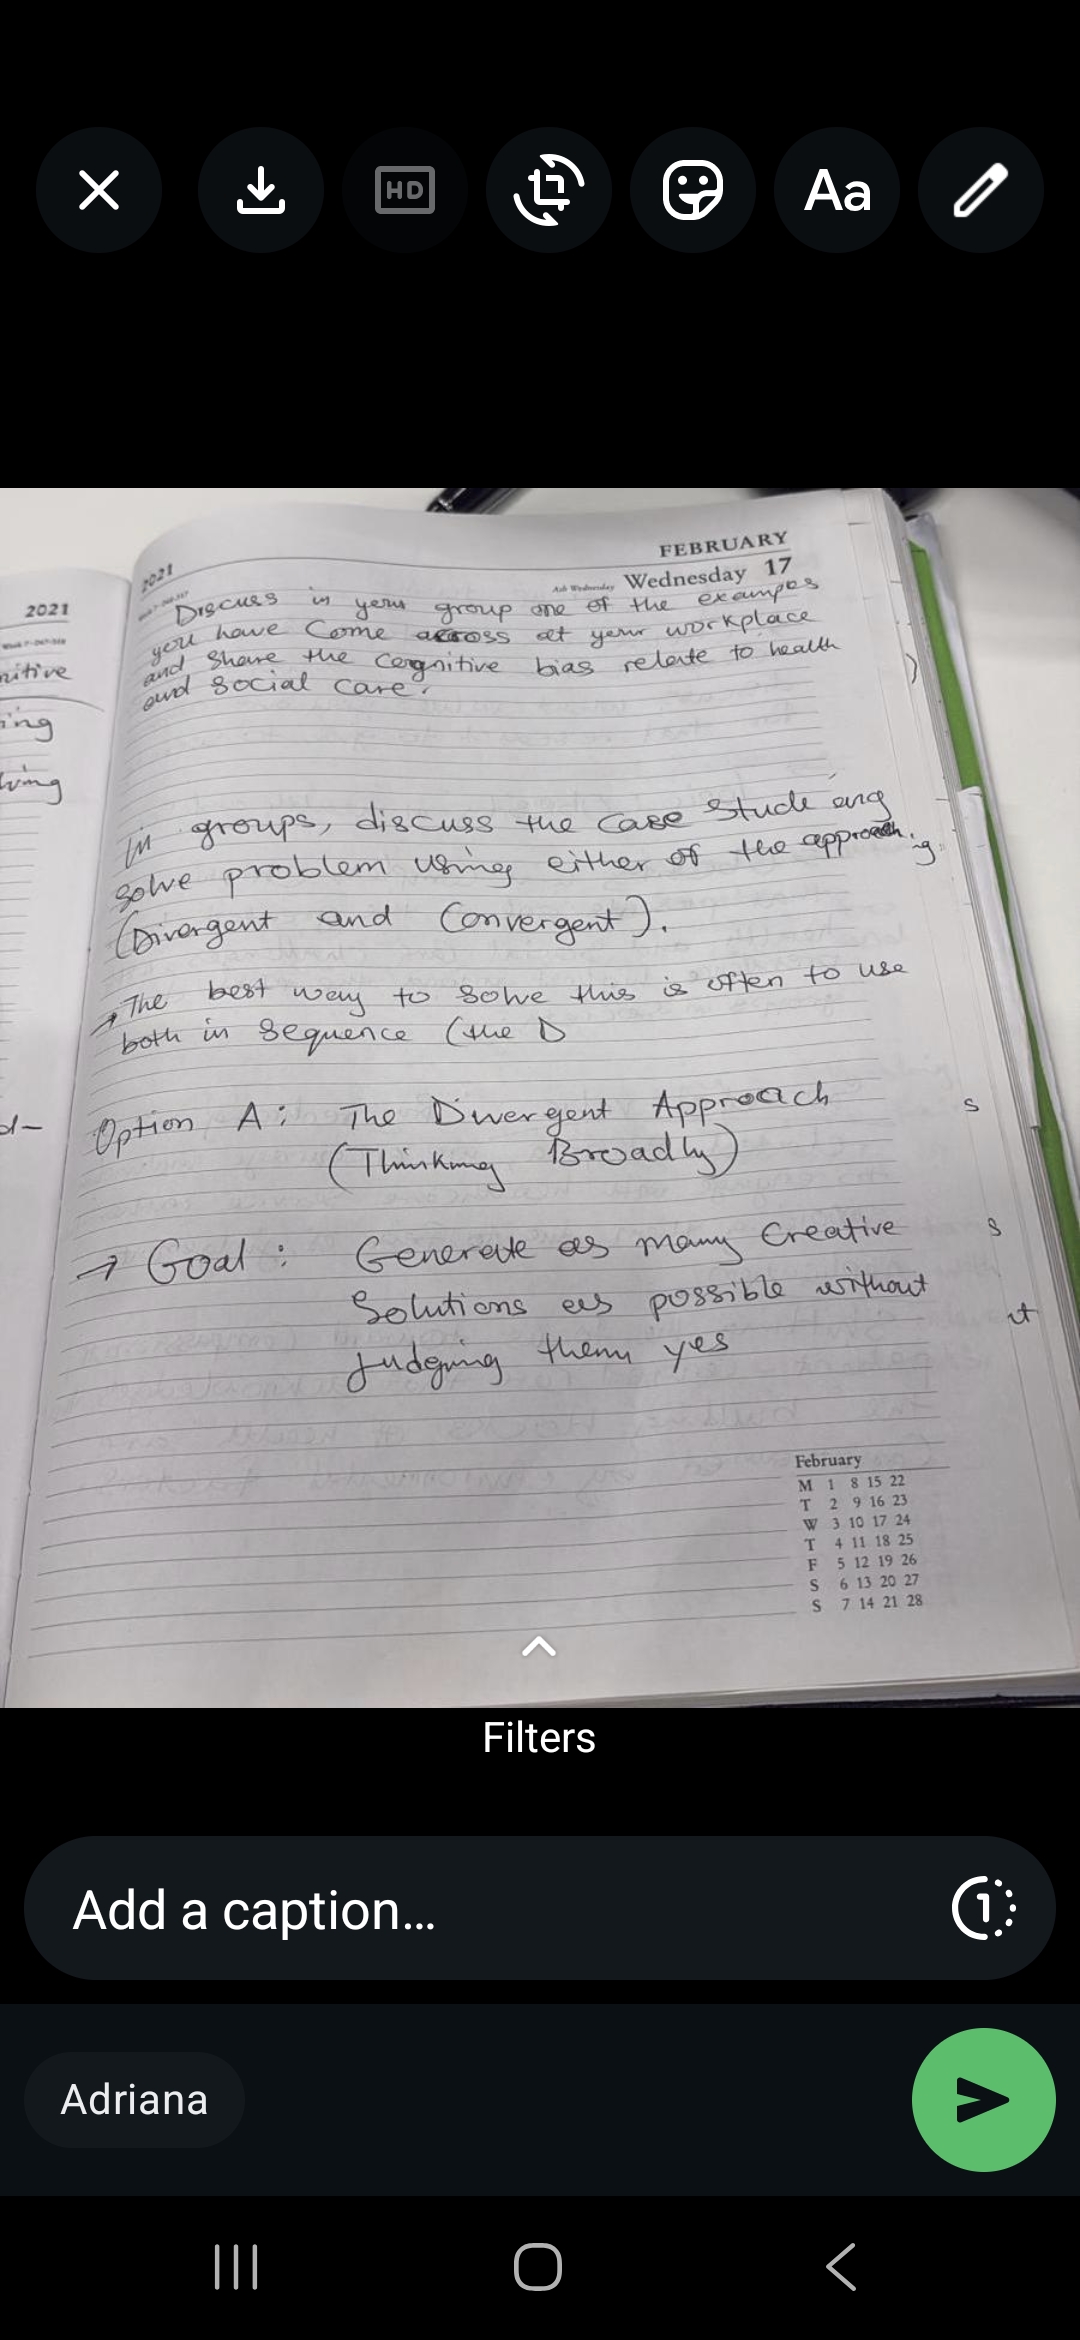 HD
Aa
2021
FEBRUARY
Wednesday 17
Discuss in your group one of the exampes
you have Come across at your workplace
and share the cognitive bias relate to health
and social care.
2021
nitive
ing
lving
In groups, discuss the case stude ang
solve problem using either of the approach.
g
(Divergent and Convergent).
→ The best way to solve this is often to use
both in sequence (the D
Option A: The Divergent Approach
(Thinking Broadly)
s
→ Goal: Generate as many Creative
s
Solutions as possible without
ut
Judging them yes
February
M 1 8 15 22
T 2 9 16 23
W 3 10 17 24
T 4 11 18 25
F 5 12 19 26
S 6 13 20 27
S 7 14 21 28
Filters
Add a caption...
1
Adriana